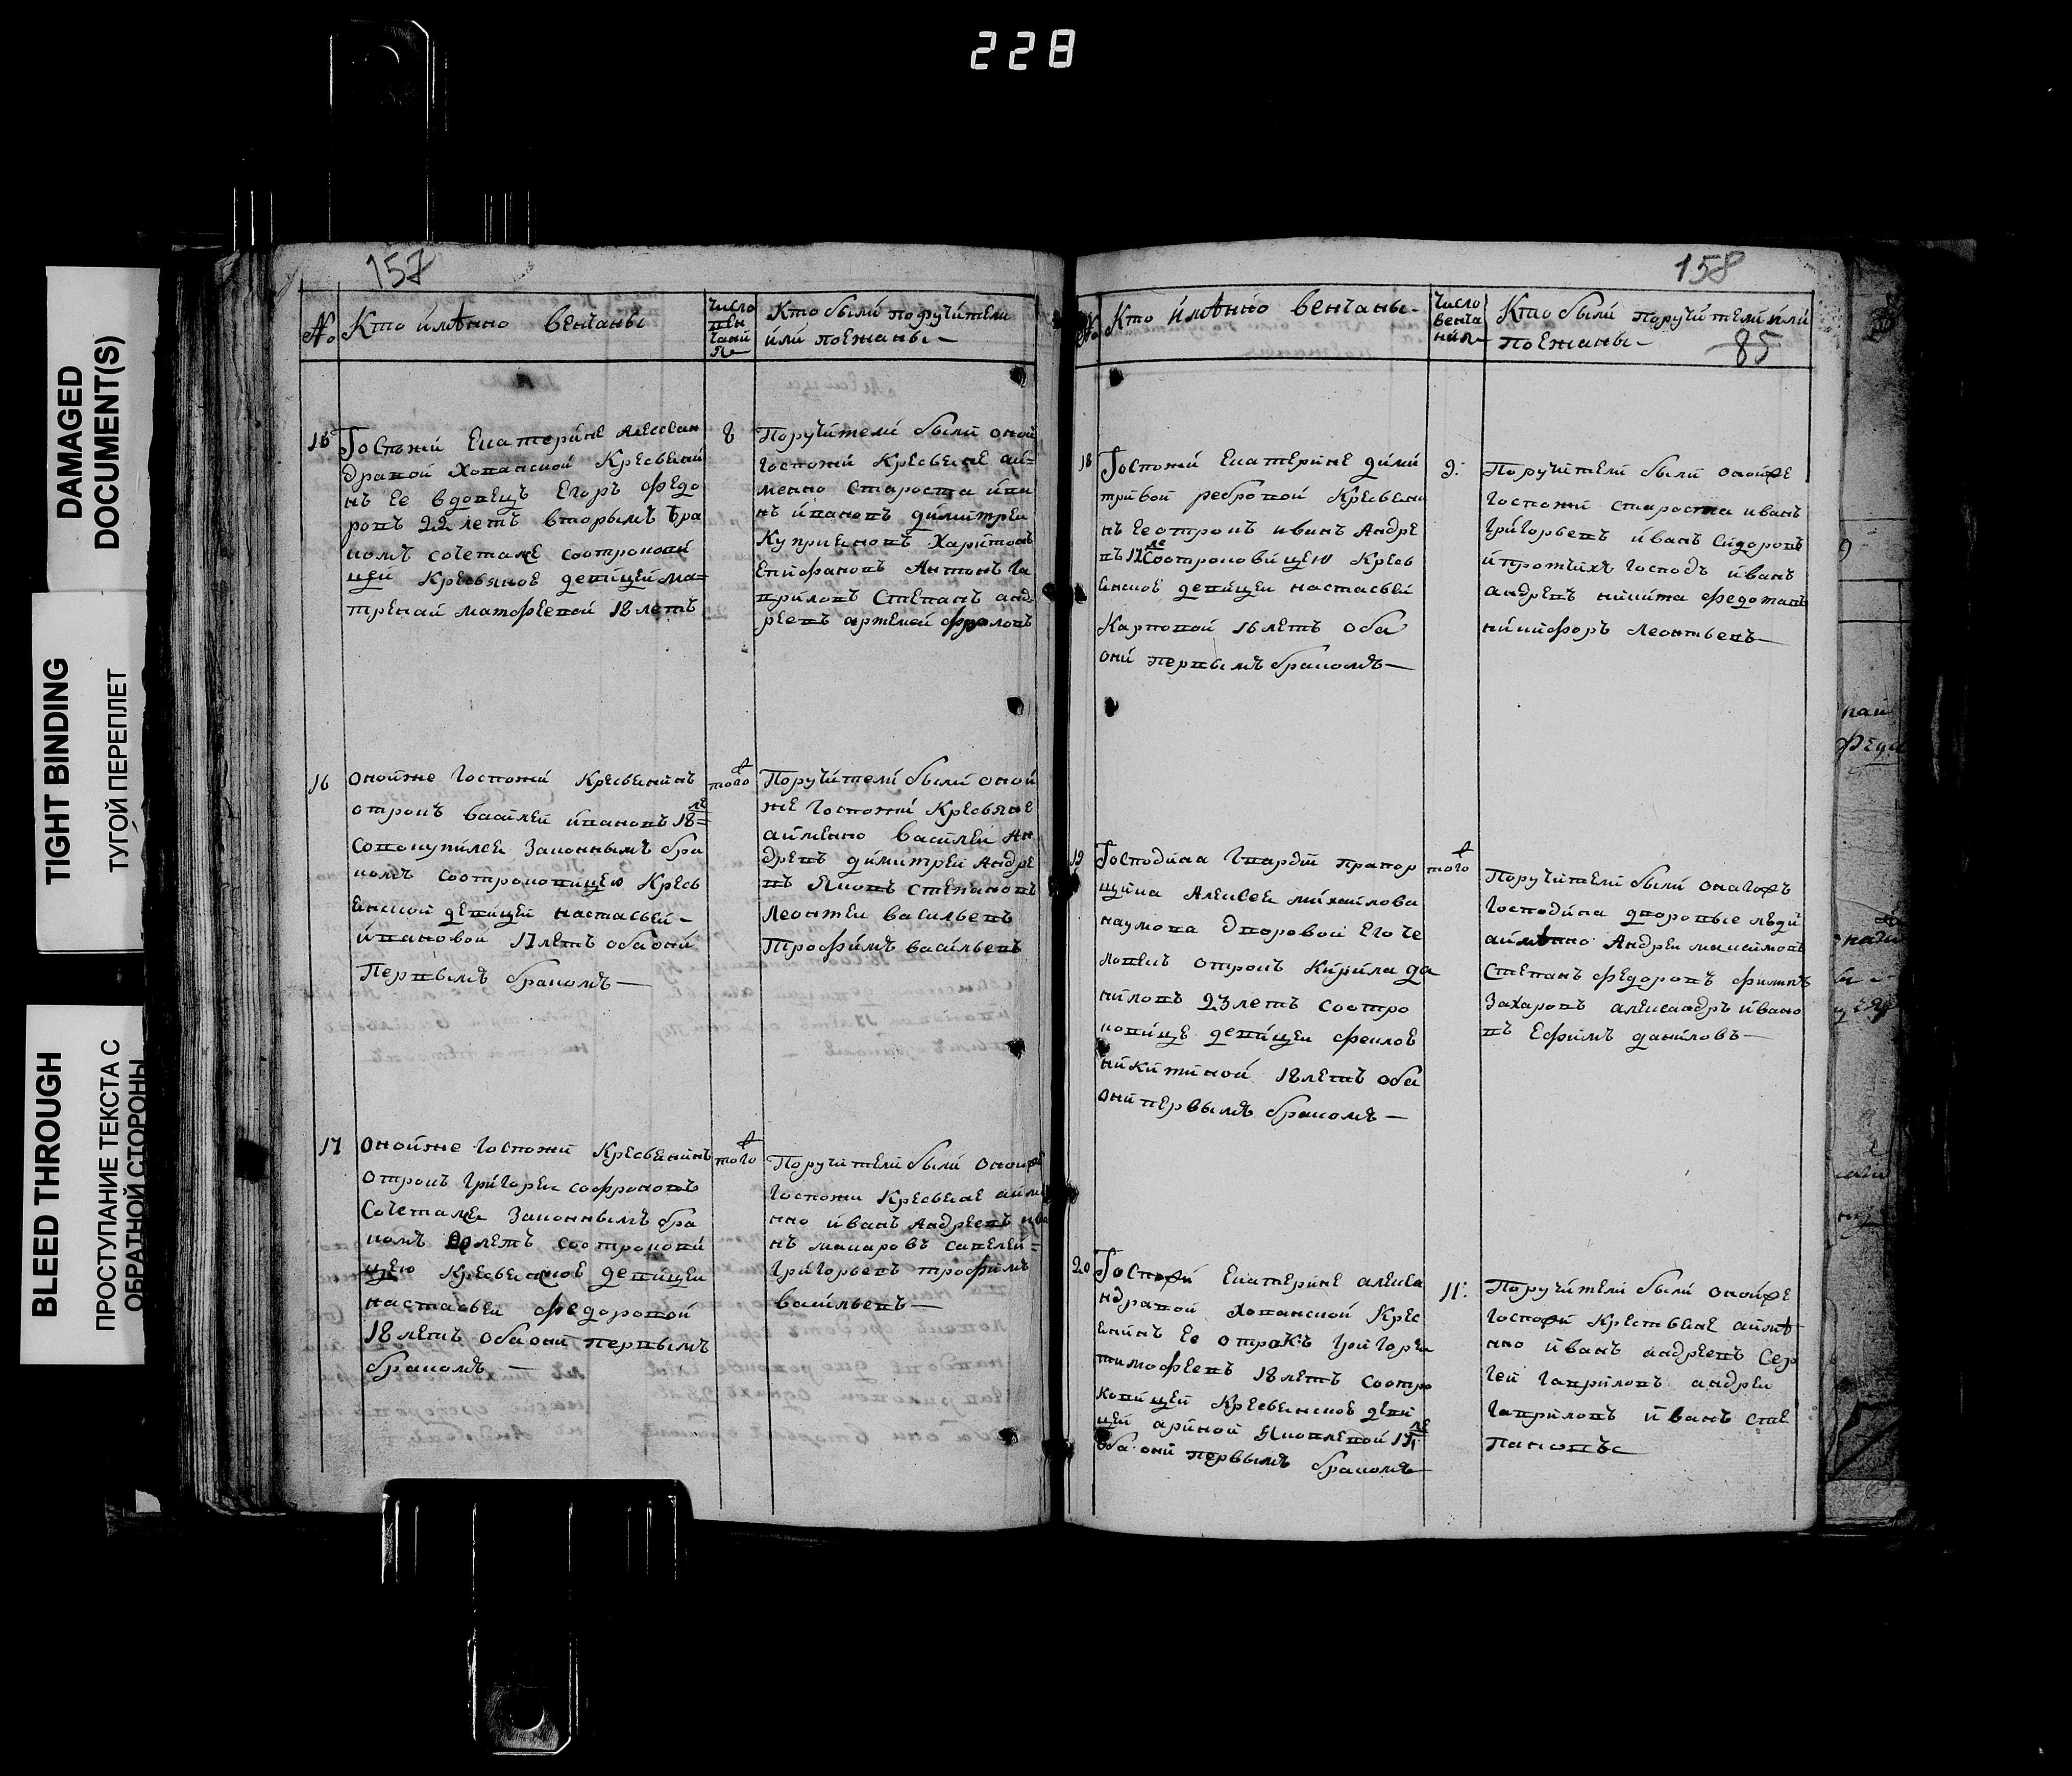 228
DAMAGED
DOCUMENT(S)
TIGHT BINDING
ТУГОЙ ПЕРЕПЛЕТ
BLEED THROUGH
ПРОСТУПАНИЕ ТЕКСТА С
ОБРАТНОЙ СТОРОНЫ
157
№ Кто имѣнно венчаны
число
вен
чани
я
Кто были поручители
или поежаны
15 Госпжи Екатерине алеѯан
дравой Хованской Кресьяни
нъ Ее вдовецъ Егоръ Федо
ровъ 22 летъ вторымъ бра
комъ сочетале соотрокови
цей Кресьянкое девицей ма=
тренай матфевой 18 летъ
8
Поручители были оной
госпожи Кресьяне аи=
менно староста ива
нъ ивановъ димитреи
Куприяновъ Харитонъ
Епифановъ Антонъ Га
вриловъ Степанъ анд
реевъ артемей фроловъ
16 онойже Госпожи Кресьянинъ
отрокъ василей ивановъ 18 ле
совокупилсе Законнымъ бра
комъ соотроковицею Кресь
янской девицей настасьей
ивановой 17 летъ оба они
первымъ бракомъ
того
Поручители были оной
же Госпожи Кресьяне
аименно василей Ан
древъ димитрей Андре
въ Яковъ степановъ
Леонтеи васильевъ
Трофимъ васильевъ
17 онойже госпожи Кресьянинъ
отрокъ Григореи софроновъ
сочеталсе Законнымъ бра
комъ 20 летъ соотрокови
цею Кресьянское девицеи
настасьеи федоровой
18 летъ оба они первымъ
бракомъ
того
Поручители были оной
госпожи Кресьяне аимѣ
нно иванъ Андреевъ ива
нъ макаровъ савелей
Григорьевъ трофимъ
васильевъ
158
№ Кто имѣнно венчаны
число
венча
ния
Кто были поручители или
поежаны
85
18 Госпожи Екатерине дими
тривой ребровой Кресьяни
нъ Ее отрокъ иванъ Андре
въ 17 ле соотроковицею Кресь
янское девицеи настасьей
Карповой 16 летъ оба
они первымъ бракомъ
9:
Поручители были онойже
госпожи староста иванъ
Григорьевъ иванъ Сидоровъ
и протчихъ господъ иванъ
андревъ никита федотавъ
никифоръ леонтьевъ
19 Господина Гвардии прапор
щика Алеѯеи михаилова
наумова дворовой Его че
ловекъ отрокъ Кирила да
ниловъ 23 летъ соотро
ковице девицеи феклое
никитиной 18 летъ оба
они первымъ бракомъ
того
Поручители были онагожъ
господина дворовые люди
аимѣнно Андреи макаимовъ
Степанъ федоровъ филипъ
Захаровъ александръ ивано
въ Ефимъ даниловъ
20 Госпожи Екатерине алекса
ндравой Хованской Крес
янинъ Ее отрокъ Григореи
тимофеевъ 18 летъ соотро
ковицей Кресьянское деви
цей ариной Яковлевой 17 ле
оба они первымъ бракомъ
11:
Поручители были онойже
госпожи Крестьяне аимѣ
нно иванъ андреевъ Сер
гей гавриловъ андреи
гавриловъ иванъ сте
пановъ